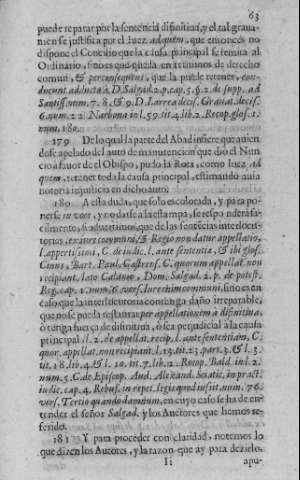 63
puede reparar por la sentencia difinitiua, y el tal grauamen
se justifica por el Iuez adquem, que entonces no
dispone el Concilio que la causa principal se remita al
Ordinario, sino es que queda en terminos de derecho
comun, & per consequens, que la puede retener, conducunt
adducta à D. Salgad. 2. p. cap. 5. §. 2. de supp. ad
Santissimum. 7. 8. & 9. D. Larrea decis. Granat. decis.
6. num. 22. Narbona in l. 59. tit. 4. lib. 2. Recop. glos. 1.
num. 180.
179 De lo qual la parte del Abad infiere que auiendose
apelado del auto de manutencion que dio el Nuncio
a fauor de el Obispo, pudo la Rota, como Iuez ad
quem, retener toda la causa principal, estimando auia
notoria injusticia en dicho auto.
180 A esta duda, que solo es colorada, y para ponerse
in voce, y no darse a la estampa, se responderà facilmente,
si aduertimos, que de las sentencias interlocutorias,
ex iure communi, & Regio non datur appellatio,
l. apertissimi, C. de iudic. l. ante sententiæ, & ibi glos.
Cinus, Bart. Paul. Castrens. C. quorum appellat. non
recipiant, late Calauos. Dom. Salgad. 2. p. de potest.
Reg. cap. 1. num. 6. vers. Iure enim communi, sino es en
caso que la interlocutoria contenga daño irreparable,
que no se pueda restaurar per appellationem a difinitiua,
ò tenga fuerça de difinitiua, ò sea perjudicial a la causa
principal. l. 2. de appellat. recip. l. ante sententiam, C.
quor. appellat. non recipiant. l. 13. tit. 23. part. 3. & l. 3.
tit. 18. lib. 4. & l. 10. tit. 7. lib. 2. Recop. Bald. in l. 2.
num. 5. C. de Episcop. Aud. Alexand. Scatia, in pract.
iudic. cap. 4. Rebuf. in repet. legis quod iussit, num. 76.
vers. Tertio quando damnum, en cuyo caso se ha de entender
el señor Salgad. y los Auctores que hemos referido.
181 Y para proceder con claridad, notemos lo
que dizen los Autores, y la razon que ay para dezirlo,
Ii apu-